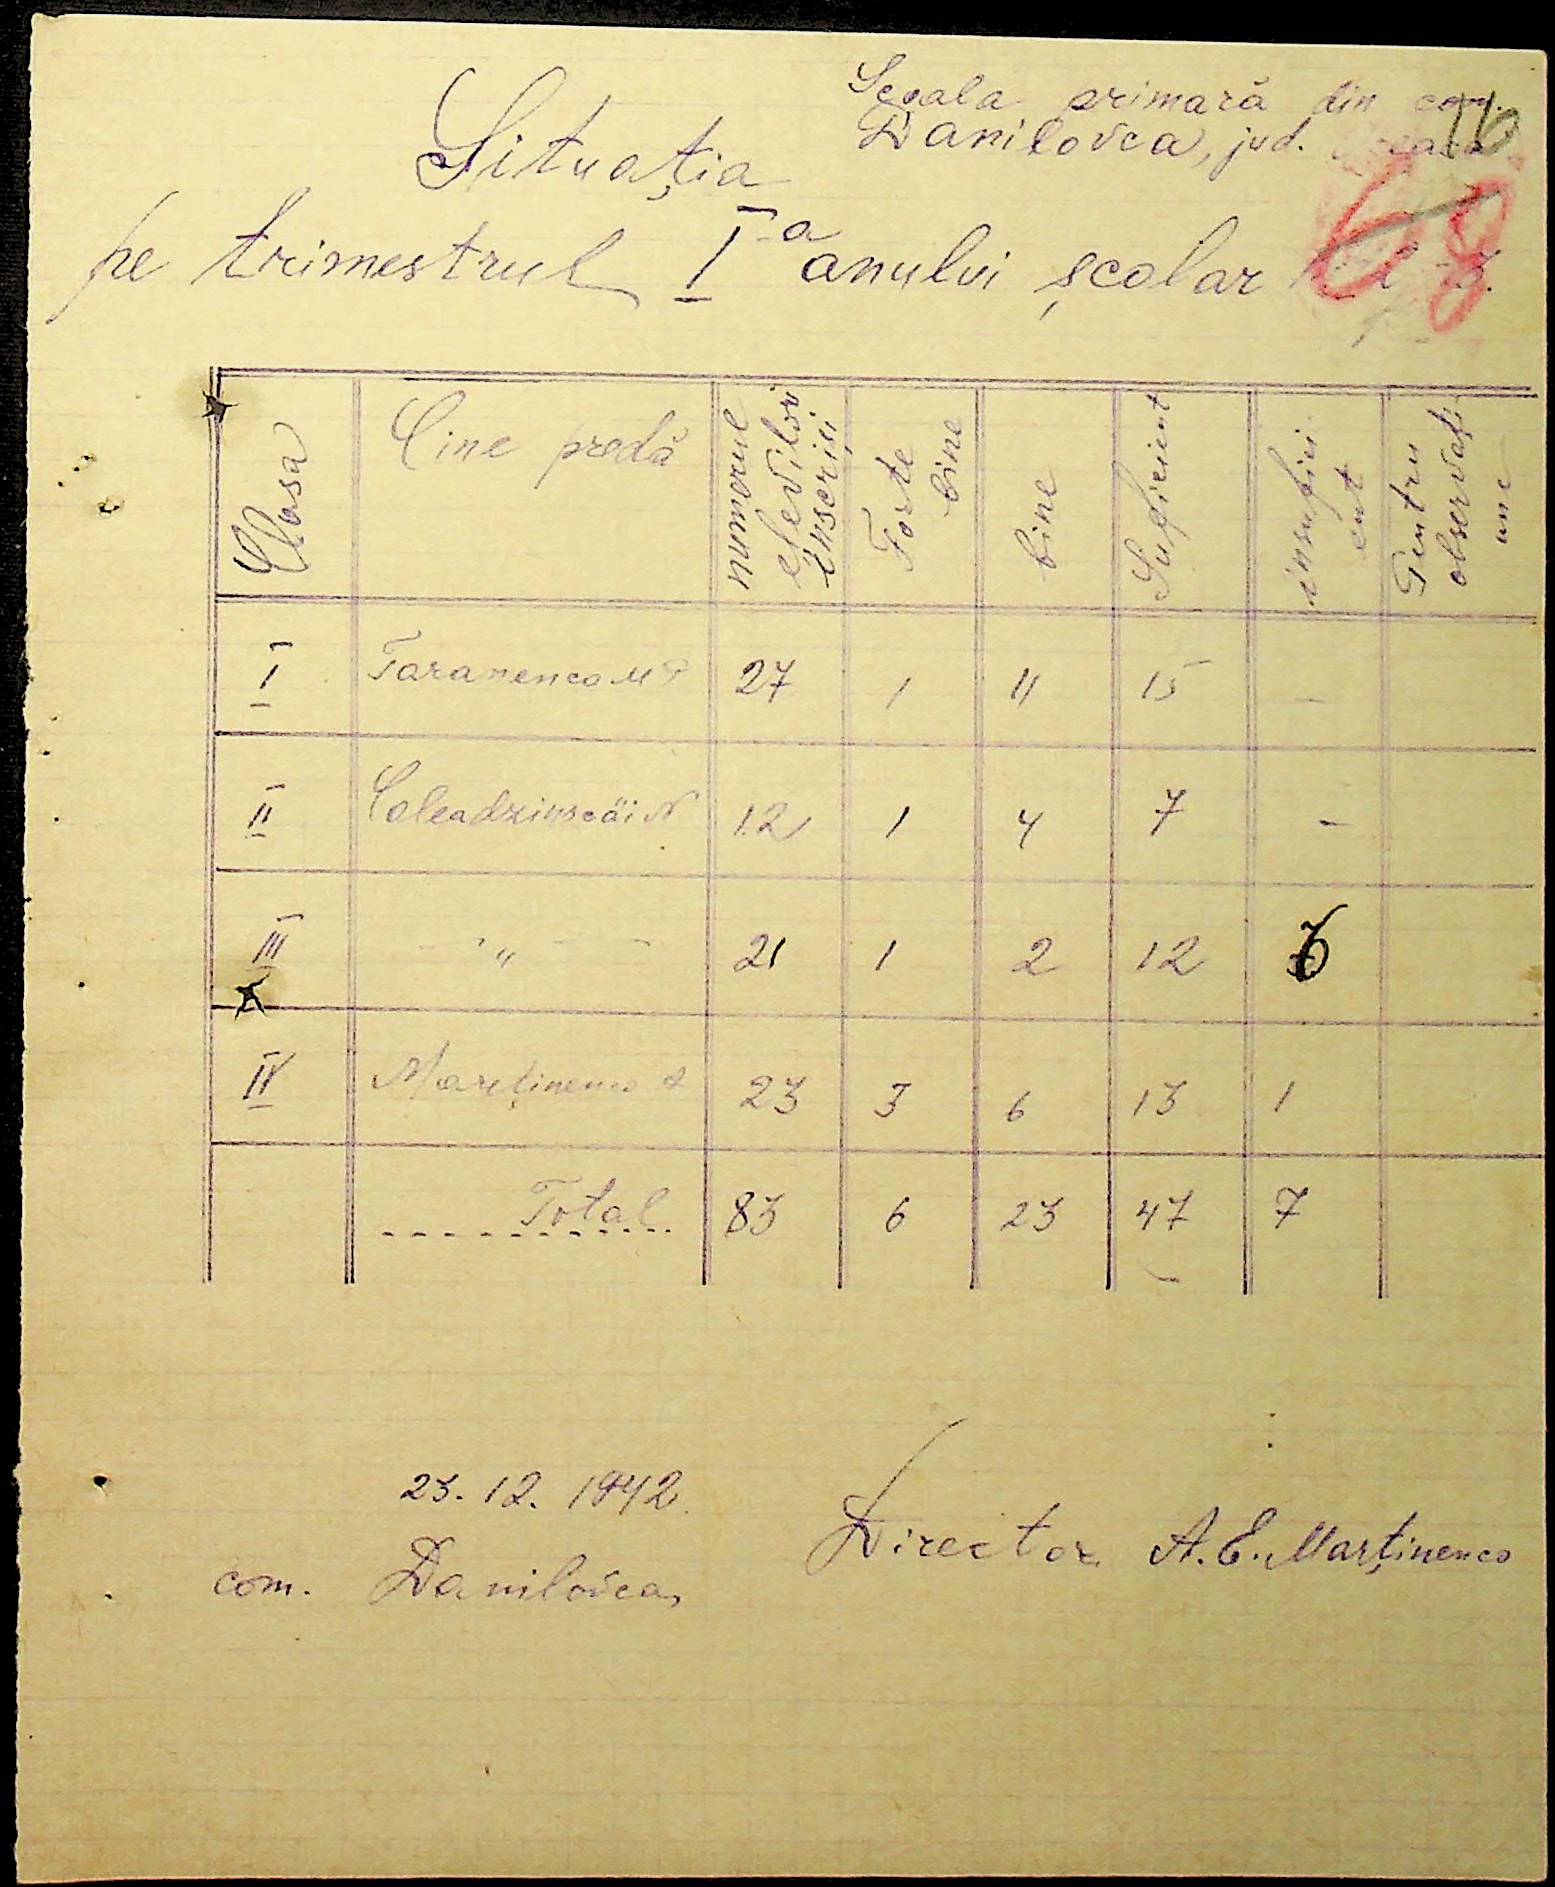 Școala primară din com.
Danilovca, jud.
116
68
Situația
pe trimestrul I-a anului școlar
Clasa Cine predă numerul elevilor înscriși Forte bine bine Suficient insufici ent Pentru observați une
I Taranenco 27 1 11 15 -
II Coleadzinscăi N 12 1 4 7 -
III - " - 21 1 2 12 6
IV Marținenco A 23 3 6 13 1
Total 83 6 23 47 7
23. 12. 1942.
Director A. E. Marținenco
com. Danilovca